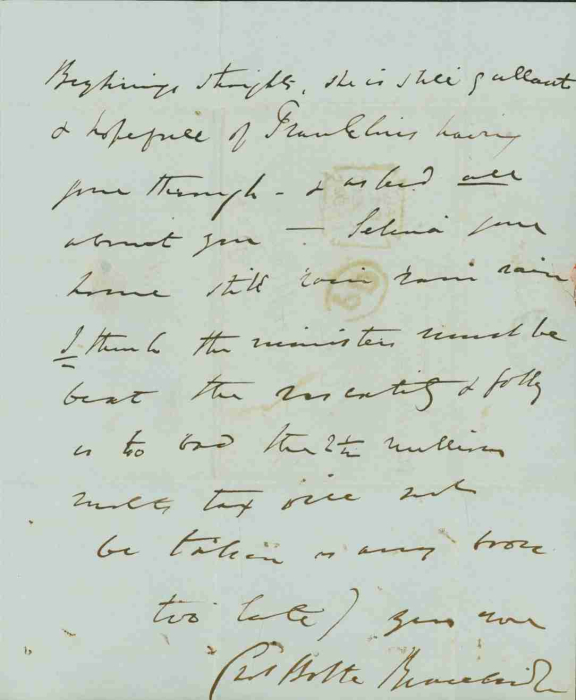 Behrings straights, she is still gallant
& hopefull of Franklins having
gone through - & asked all
about you — Selina gone
home still rain rain rain
I think the ministers must be
beat the rascality & folly
is too bad the 2½ millions
malt tax will not
be taken
too late) yrs
Bracebridge